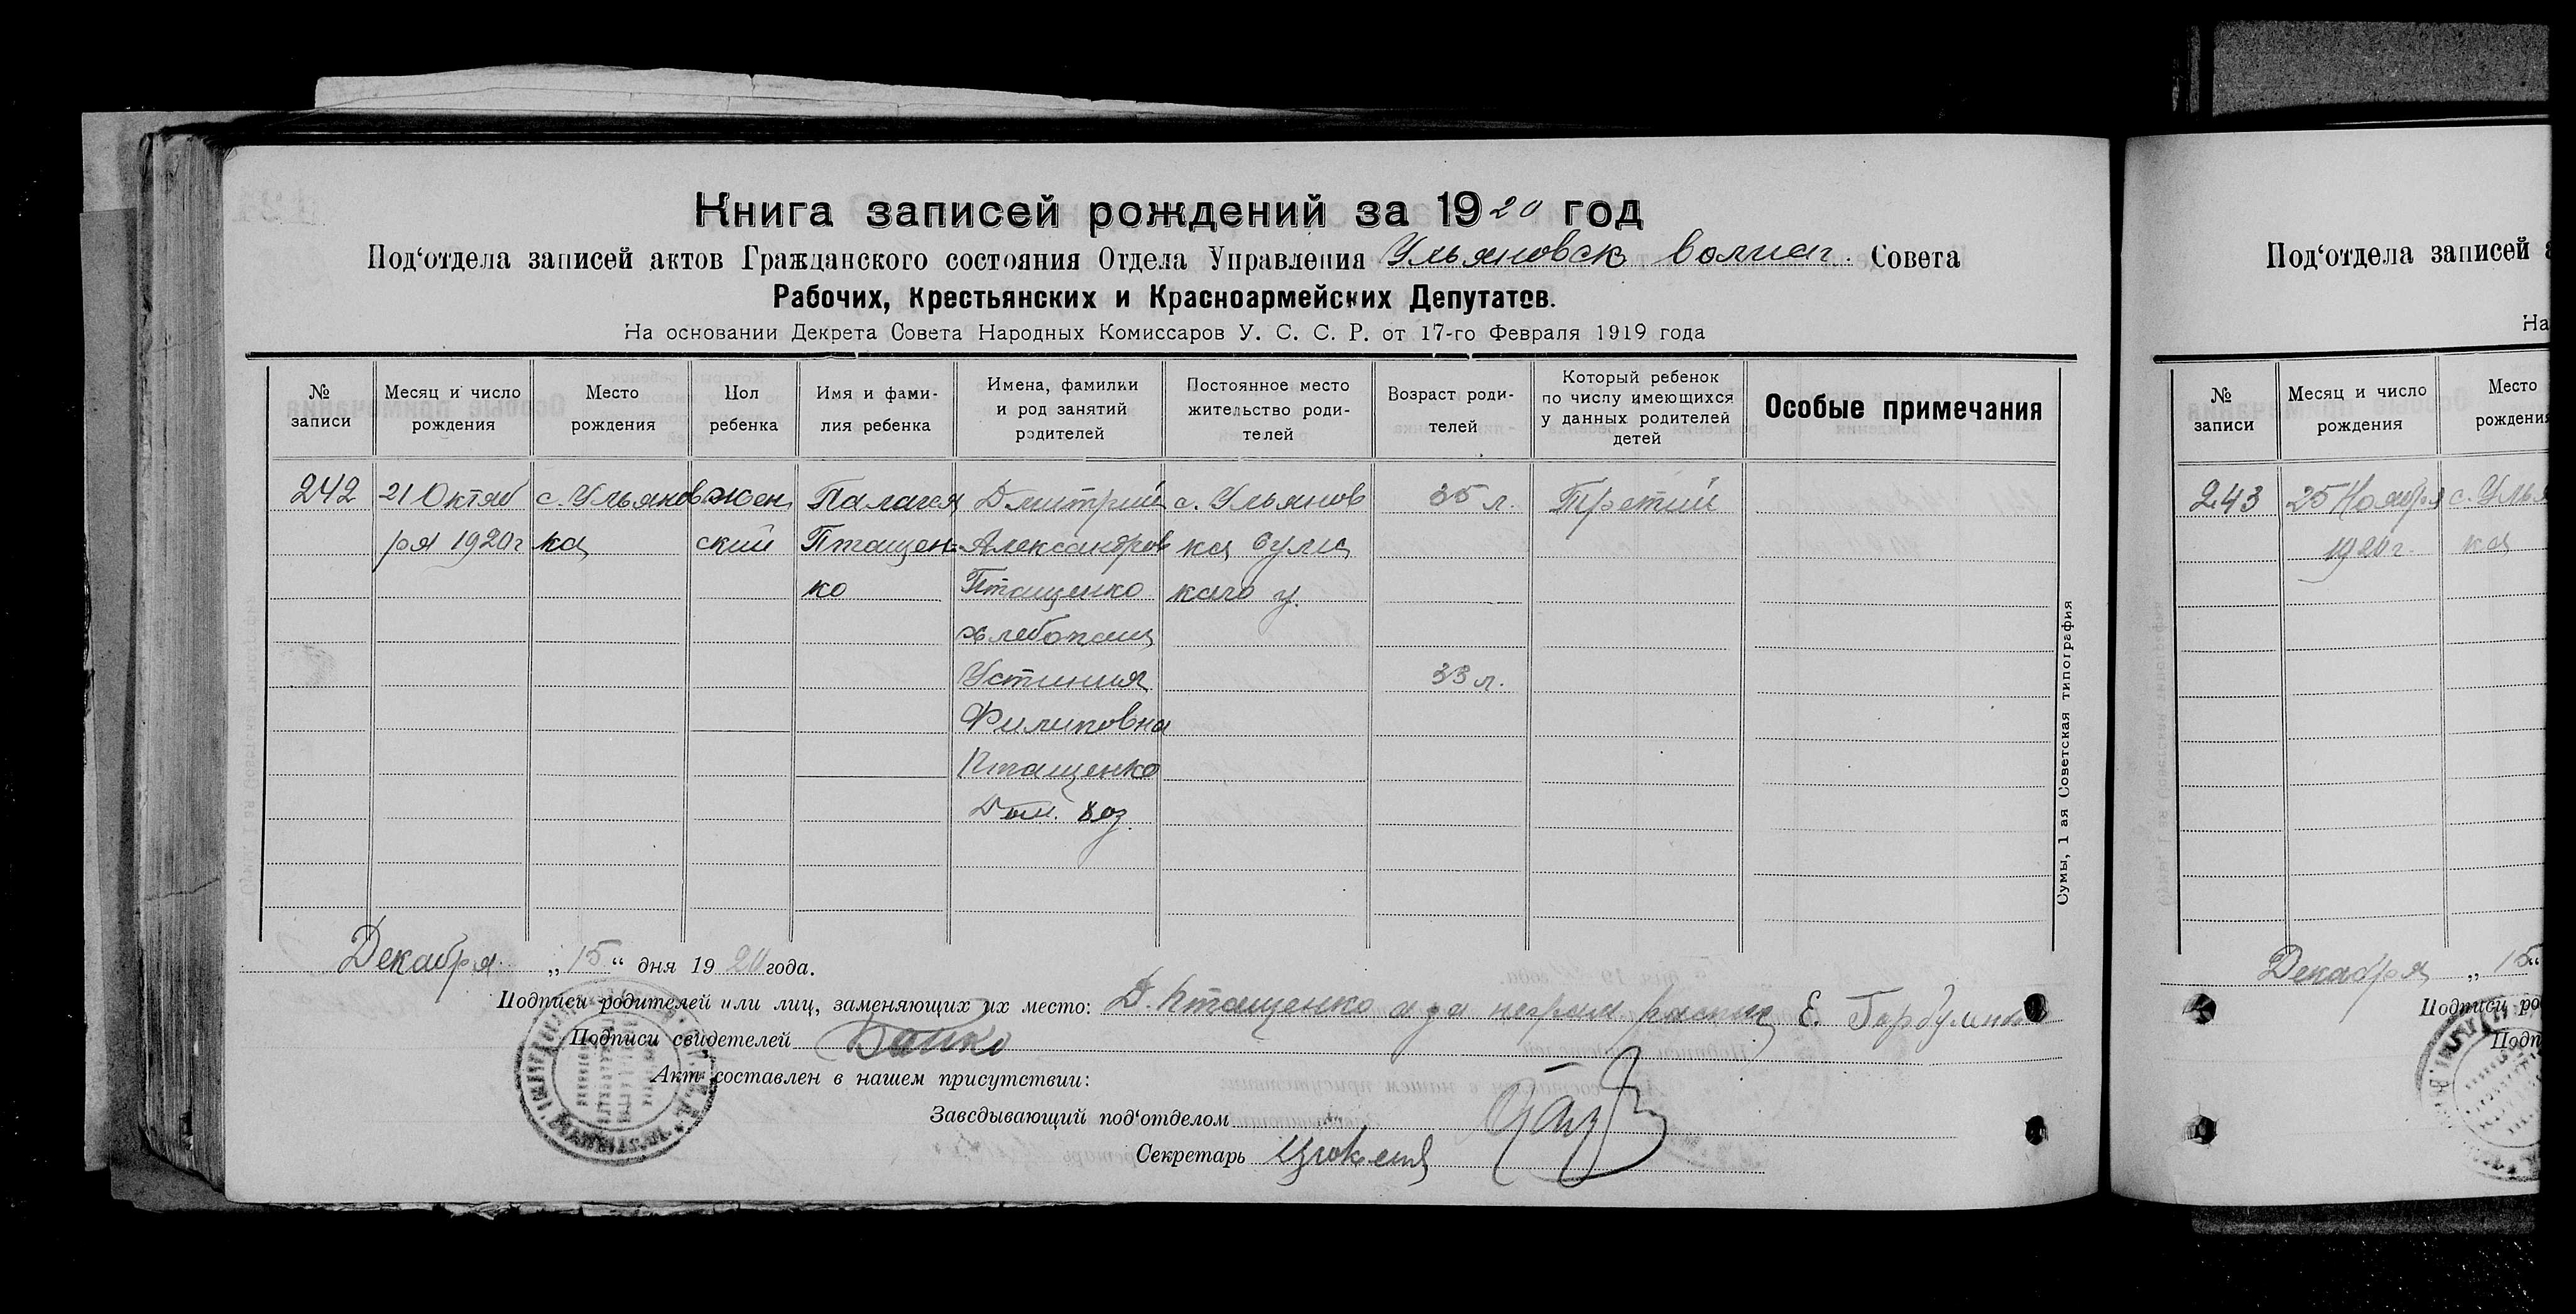 Книга записей рождений за 1920 год
Под‘отдела записей актов Гражданского состояния Отдела Управления Ульяновск волист Совета
Рабочих, Крестьянских и Красноармейских Депутатов.
На основании Декрета Совета Народных Комиссаров У. С. С. Р. от 17-го Февраля 1919 года
№ записи
Месяц и число рождения
Место рождения
Пол ребенка
Имя и фами-
лия ребенка
Имена, фамилии
и род занятий
родителей
Постоянное место
жительство роди-
телей
Возраст роди-
телей
Который ребенок
по числу имеющихся
у данных родителей
детей
Особые примечания
242 21 Октяб с. Ульянов жен Палагея Дмитрий с. Ульянов 35 л. Третий
ря 1920 г ка ский Птащен- Александров ка Сумс
ко Птащенко каго у.
хлебопаш
Устиния 33 л.
Филиповна
Птащенко
Дом. хоз.
Сумы, 1 ая Советская типография
Декабря „15“ дня 1920 года.
Подписи родителей или лиц, заменяющих их место: Д. Птащенко а за неграм распис Е. Горбуменко
Подписи свидетелей Бойко
Акт составлен в нашем присутствии:
Заведывающий под‘отделом
Секретарь
Под‘отдела записей
На
№ записи
Месяц и число рождения
Место
рождения
243 25 Ноября с. Улья
1920 г. ка
Декабря „15“
Подписи ро
Подп